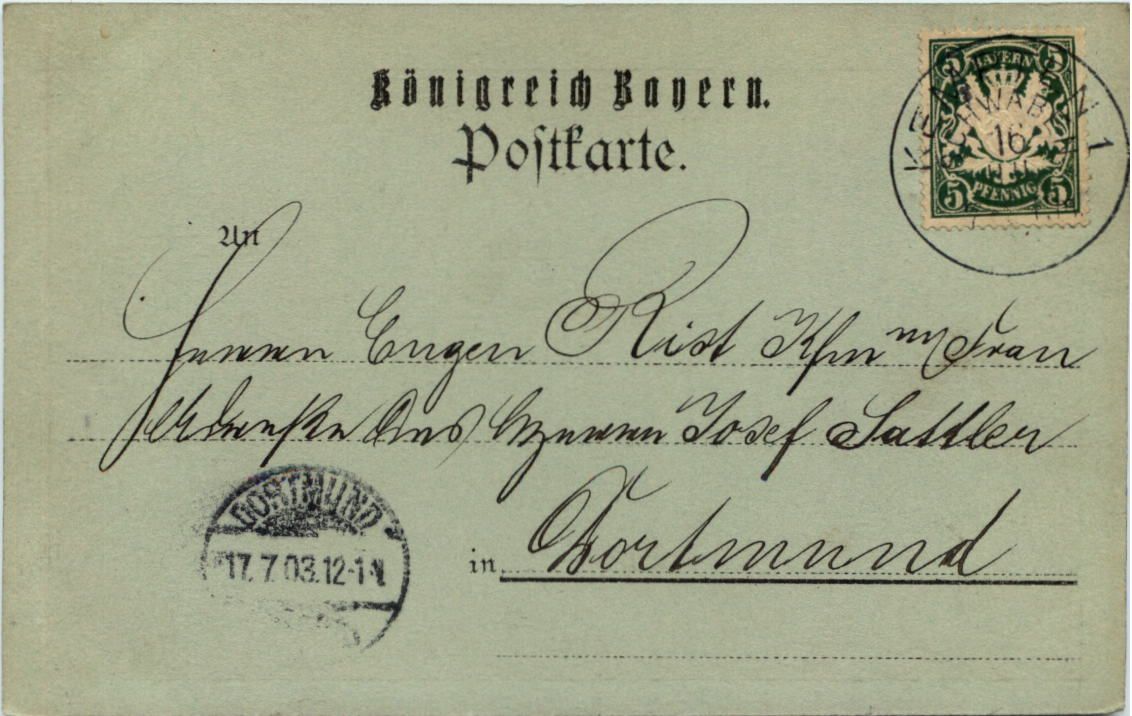 Königreich Bayern.
Postkarte.
5 BAYERN 5
5 PFENNIG 5
KEMPTEN 1
SCHWABEN
16
An
Herrn Eugen Rist Kfm
Adresse des Herrn Josef Sattler
in Dortmund
DORTMUND
17.7.03.12-1